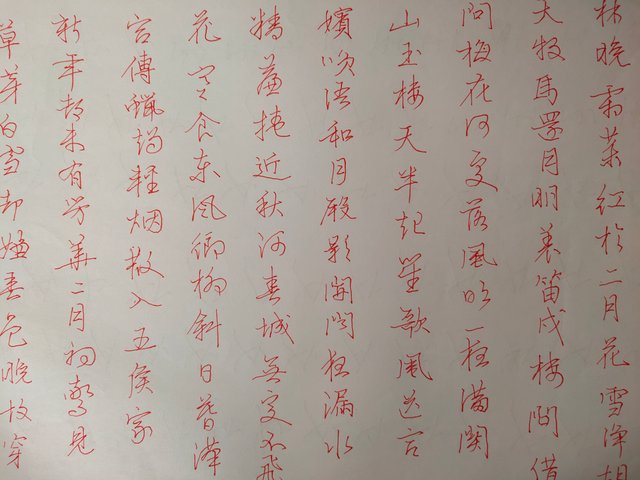 林晚霜葉红於二月花雪净胡
天牧馬還月明羌笛戍楼間借
問梅花何處落風吹一夜滿関
山玉楼天半起笙歌風送宫
嬪咲语和月殿影開闻夜漏水
精簾捲近秋河春城無處不飛
花寒食东風御柳斜日暮漢
宫傳蠟燭轻烟散入五侯家
新年都未有芳華二月初驚見
草芽白雪却嫌春色晚故穿